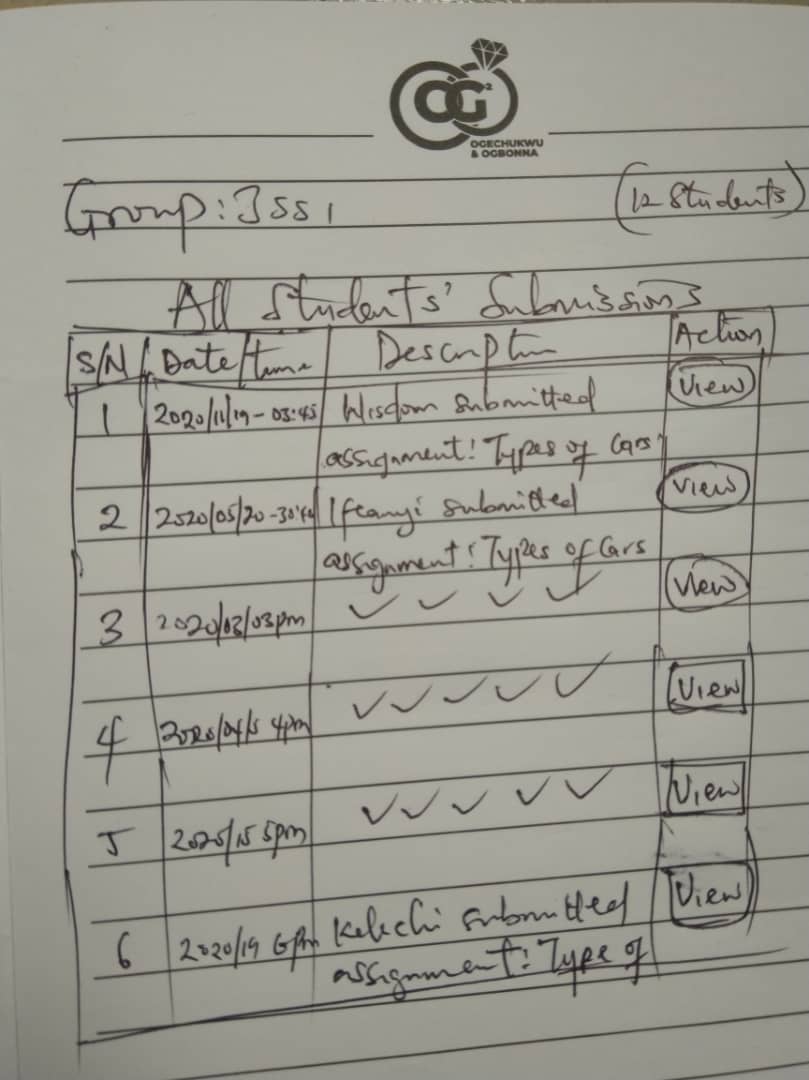 OG²
OGECHUKWU
& OGBONNA
Group: JSS 1 (12 Students)
All Students' Submissions
S/N Date/time Description Action
1 2020/11/19 - 03:45 Wisdom submitted View
assignment: Types of Cars
2 2020/05/20 - 30:40 Ifeanyi submitted View
assignment: Types of Cars
3 2020/03/03pm ✓ ✓ ✓ ✓ View
4 2020/04/15 4pm ✓ ✓ ✓ ✓ ✓ View
5 2020/15 5pm ✓ ✓ ✓ ✓ ✓ View
6 2020/19 6pm Kelechi submitted View
assignment: Type of